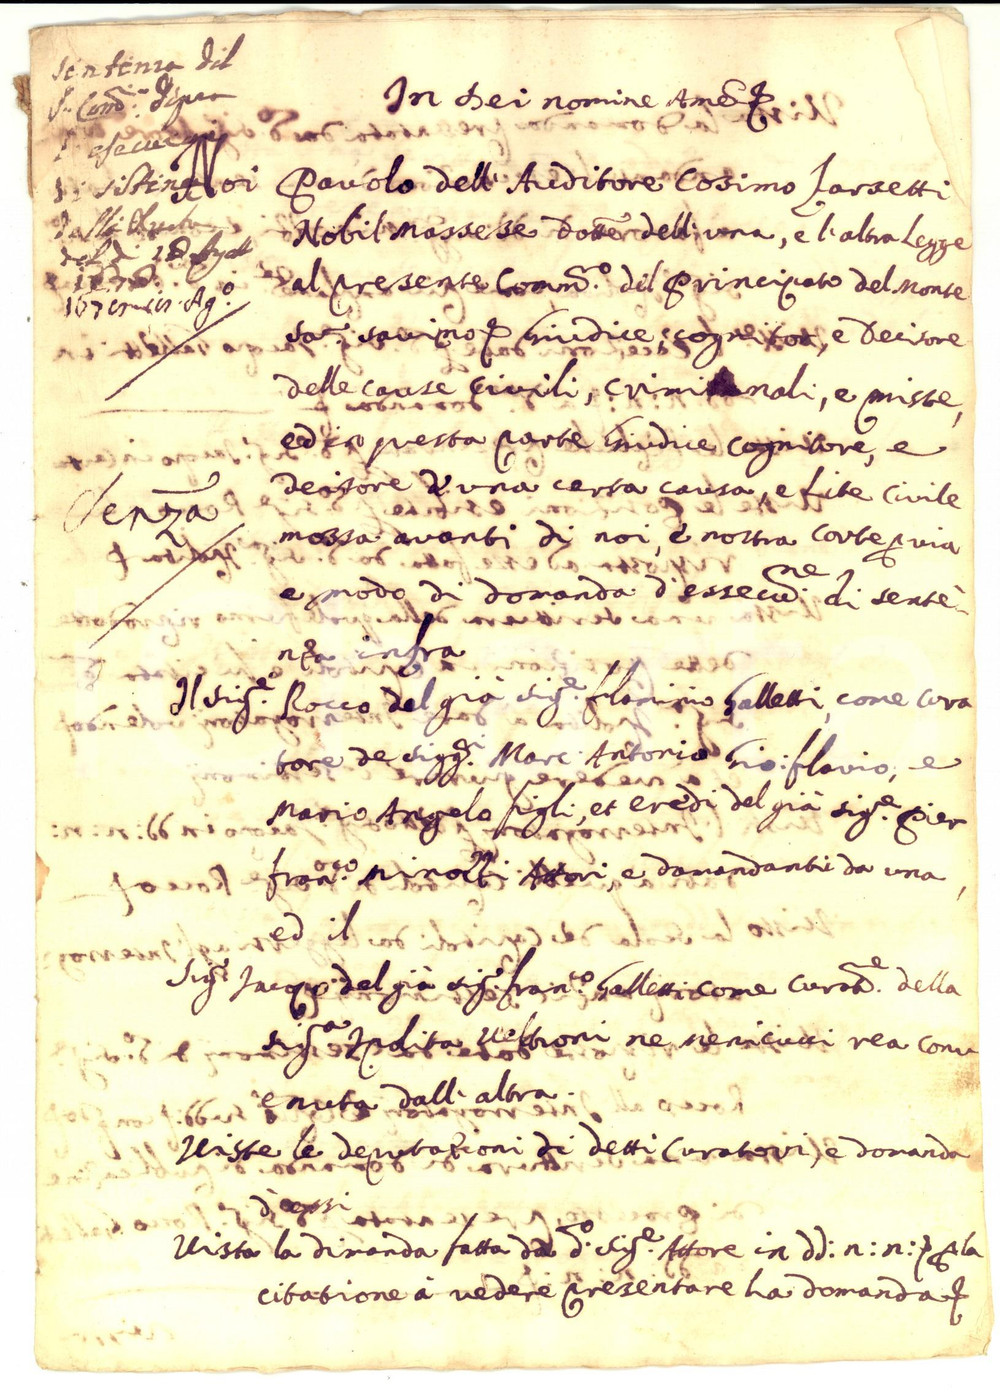 Sentenza del
In Dei nomine Amen
Noi Pavolo dell' Auditore Cosimo
Nobil Massese Dott.e dell' una, e l'altra Legge
al presente Comm.o del Principato del Monte
San Savino Giudice, cognitor, e Decisore
delle cause Civili, Criminali, e miste,
ed in questa parte Giudice cognitore, e
decisore d'una certa causa, e lite Civile
Senza
mossa avanti di noi, e nostra corte per via
e modo di domanda d'essecu.ne di sente=
nza infra
Il Sig.e Rocco del già Sig.e Flaminio Galletti, come cura
tore de Sigg.i Marc' Antonio Gio: Flavio, e
Mario Angelo figli, et eredi del già Sig.e Pier
Fran.co Attori, e domandanti da una,
ed il
Sig.e Jacopo del già Sig.e Fran.co Galletti come Curat.e della
Sig.a Ipolita ne rea conv
enuta dall' altra.
Viste le deputazioni di detti Curatori, e domanda
d'essi
Vista la dimanda fatta da d.o Sig.e Attore in dd: n: n: per la
citatione à vedere presentare la domanda